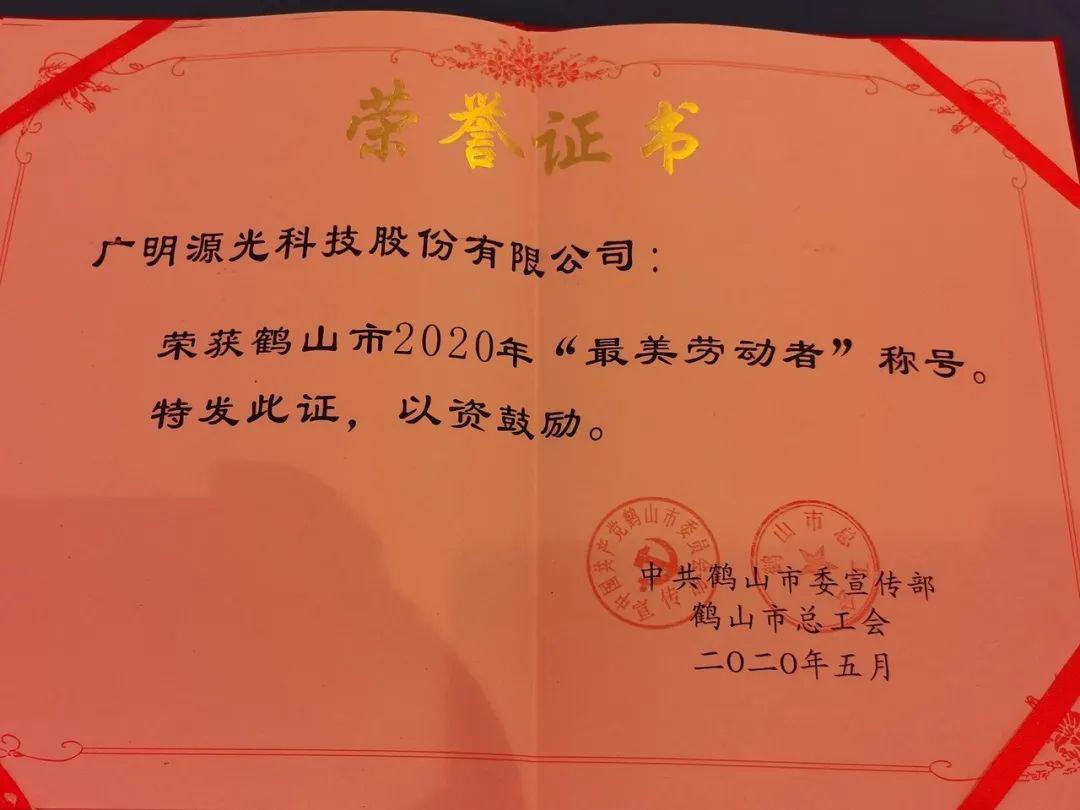 荣誉证书
广明源光科技股份有限公司：
荣获鹤山市2020年“最美劳动者”称号。
特发此证，以资鼓励。
中国共产党鹤山市委员会
宣传部
鹤山市总工会
中共鹤山市委宣传部
鹤山市总工会
二〇二〇年五月